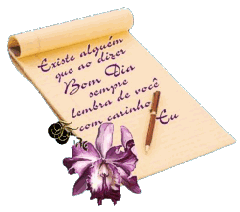 Existe alguém
que ao dizer
Bom Dia
sempre
lembra de você
com carinho Eu